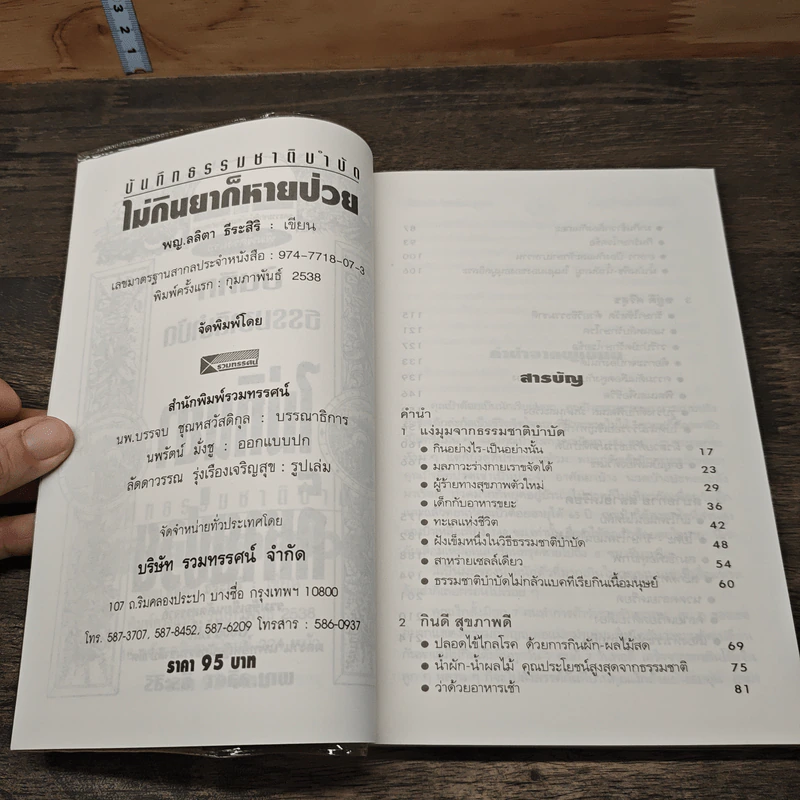 3
2
1
บันทึกธรรมชาติบำบัด
ไม่กินยาก็หายป่วย
พญ.ลลิตา ธีระสิริ : เขียน
เลขมาตรฐานสากลประจำหนังสือ : 974-7718-07-3
พิมพ์ครั้งแรก : กุมภาพันธ์ 2538
จัดพิมพ์โดย
รวมทรรศน์
สำนักพิมพ์รวมทรรศน์
นพ.บรรจบ ชุณหสวัสดิกุล : บรรณาธิการ
นพรัตน์ มั่งชู : ออกแบบปก
ลัดดาวรรณ รุ่งเรืองเจริญสุข : รูปเล่ม
จัดจำหน่ายทั่วประเทศโดย
บริษัท รวมทรรศน์ จำกัด
107 ถ.ริมคลองประปา บางซื่อ กรุงเทพฯ 10800
โทร. 587-3707, 587-8452, 587-6209 โทรสาร : 586-0937
ราคา 95 บาท
สารบัญ
คำนำ
1 แง่มุมจากธรรมชาติบำบัด
● กินอย่างไร-เป็นอย่างนั้น 17
● มลภาวะร่างกายเราขจัดได้ 23
● ผู้ร้ายทางสุขภาพตัวใหม่ 29
● เด็กกับอาหารขยะ 36
● ทะเลแห่งชีวิต 42
● ฝังเข็มหนึ่งในวิธีธรรมชาติบำบัด 48
● สาหร่ายเซลล์เดียว 54
● ธรรมชาติบำบัดไม่กลัวแบคทีเรียกินเนื้อมนุษย์ 60
2 กินดี สุขภาพดี
● ปลอดไข้ไกลโรค ด้วยการกินผัก-ผลไม้สด 69
● น้ำผัก-น้ำผลไม้ คุณประโยชน์สูงสุดจากธรรมชาติ 75
● ว่าด้วยอาหารเช้า 81